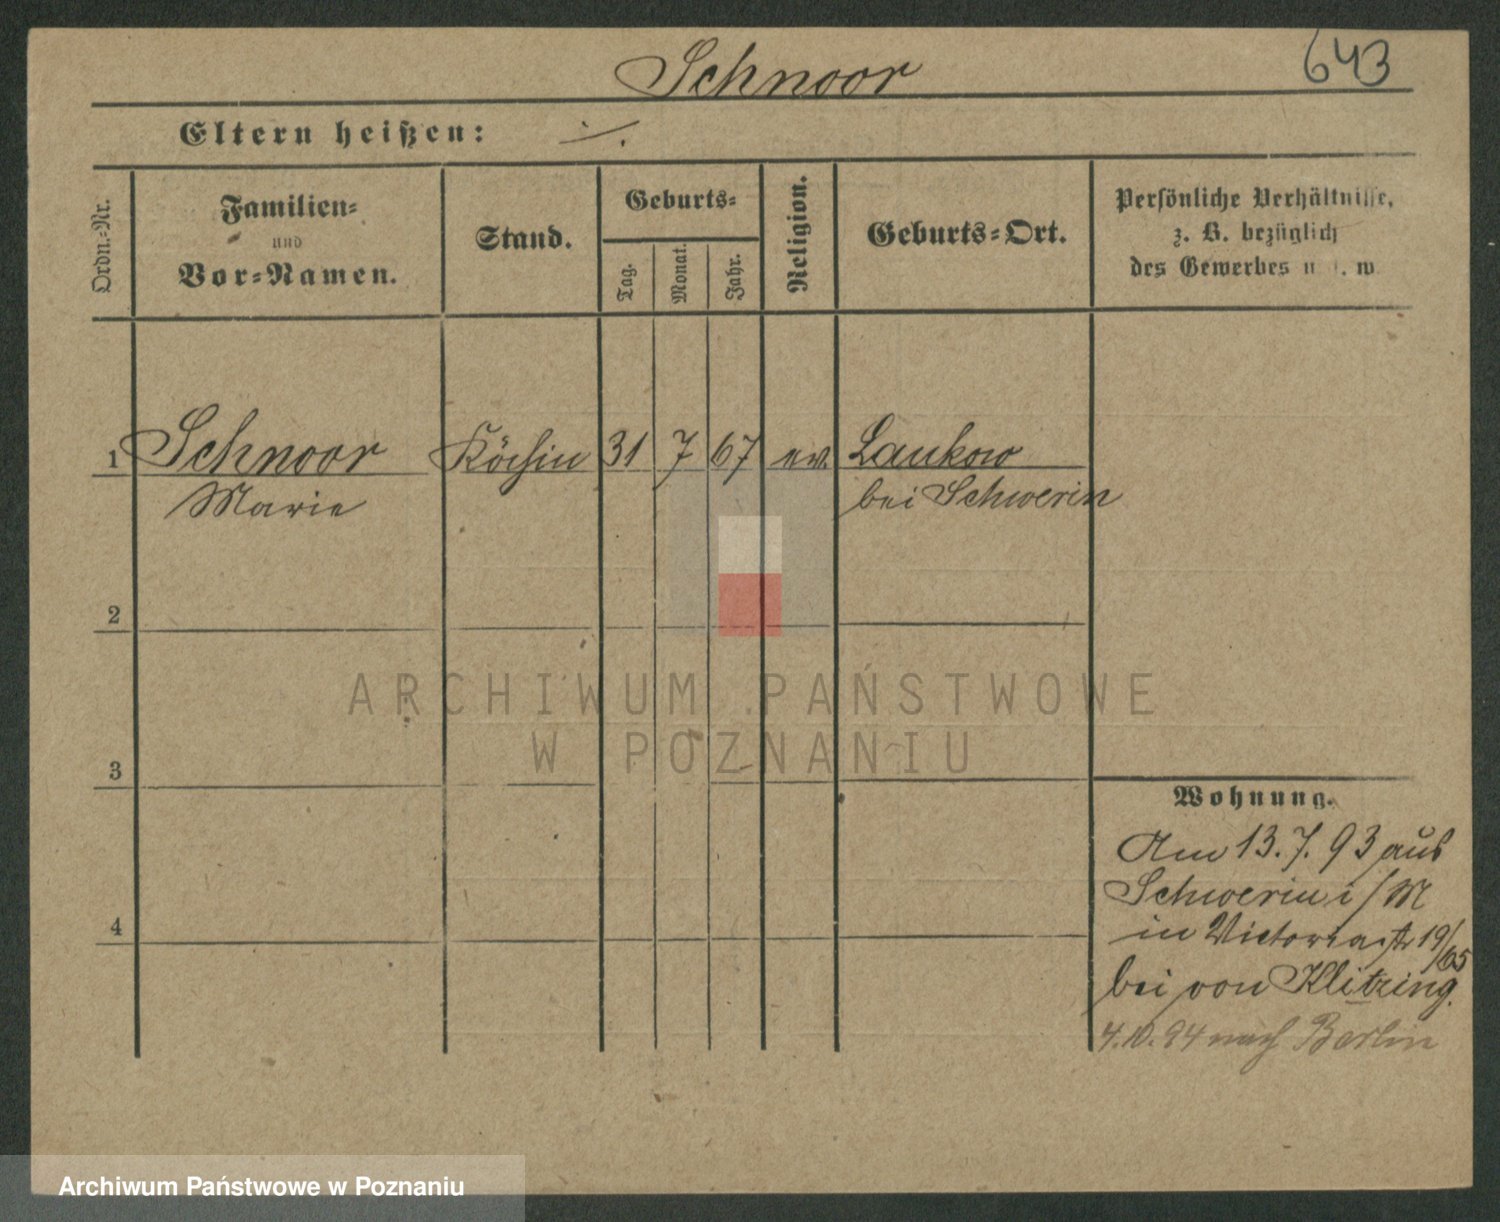 Schnoor
643
Eltern heißen: ·/.
Ordn.-Nr.
Familien-
und
Vor-Namen.
Stand.
Geburts-
Tag.
Monat.
Jahr.
Religion.
Geburts-Ort.
Persönliche Verhältnisse,
z. B. bezüglich
des Gewerbes u. s. w.
1 Schnoor Köchin 31 7 67 ev. Lankow
Marie bei Schwerin
2
3
4
Wohnung.
Am 13.7.93 aus
Schwerin i/M
in Victoriastr 19/65
bei von Klitzing.
4.10.94 nach Berlin
ARCHIWUM PAŃSTWOWE
W POZNANIU
Archiwum Państwowe w Poznaniu